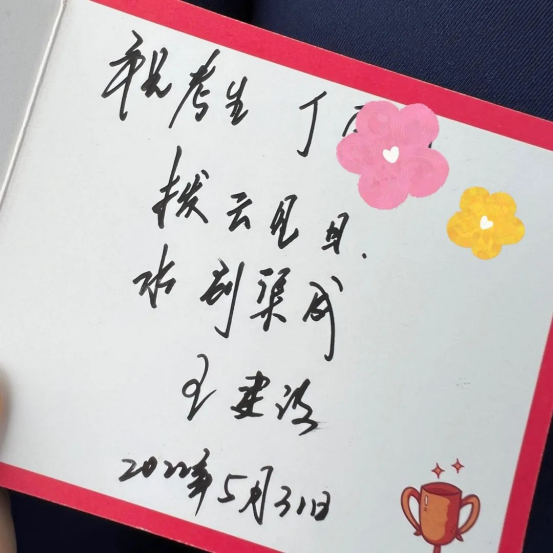 祝考生 丁
拨云见日.
水到渠成
王建波
2022年5月31日